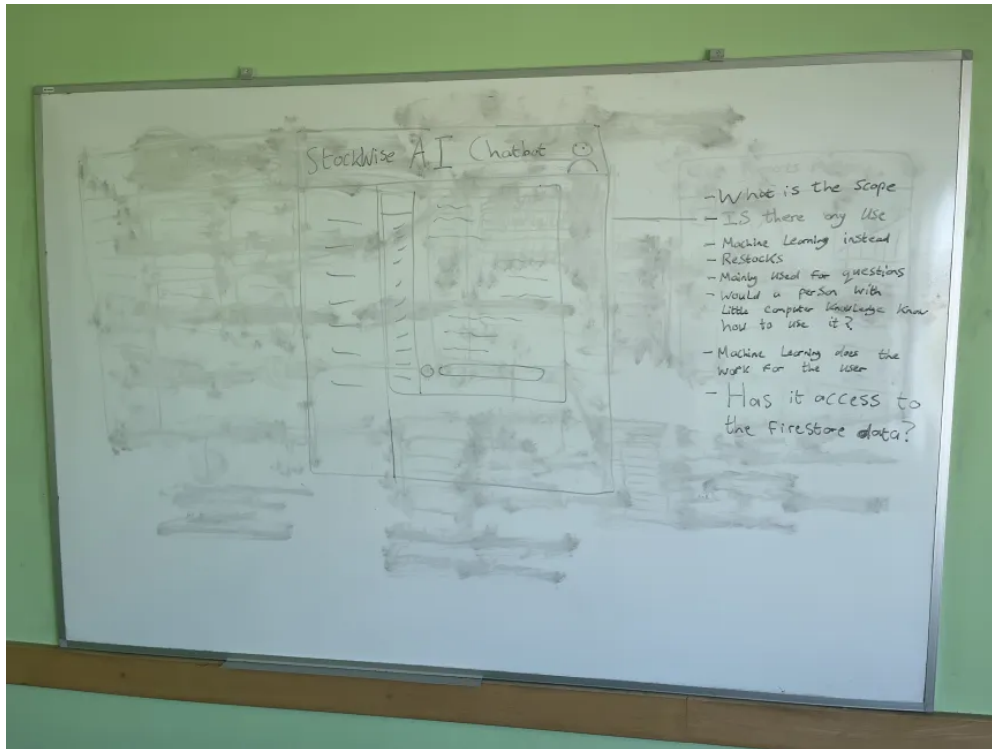 StockWise AI Chatbot
- What is the Scope
- IS there any Use
- Machine Learning instead
- Restocks
- Mainly used for questions
- Would a person with
Little computer knowledge know
how to use it?
- Machine Learning does the
work for the user
- Has it access to
the Firestore data?